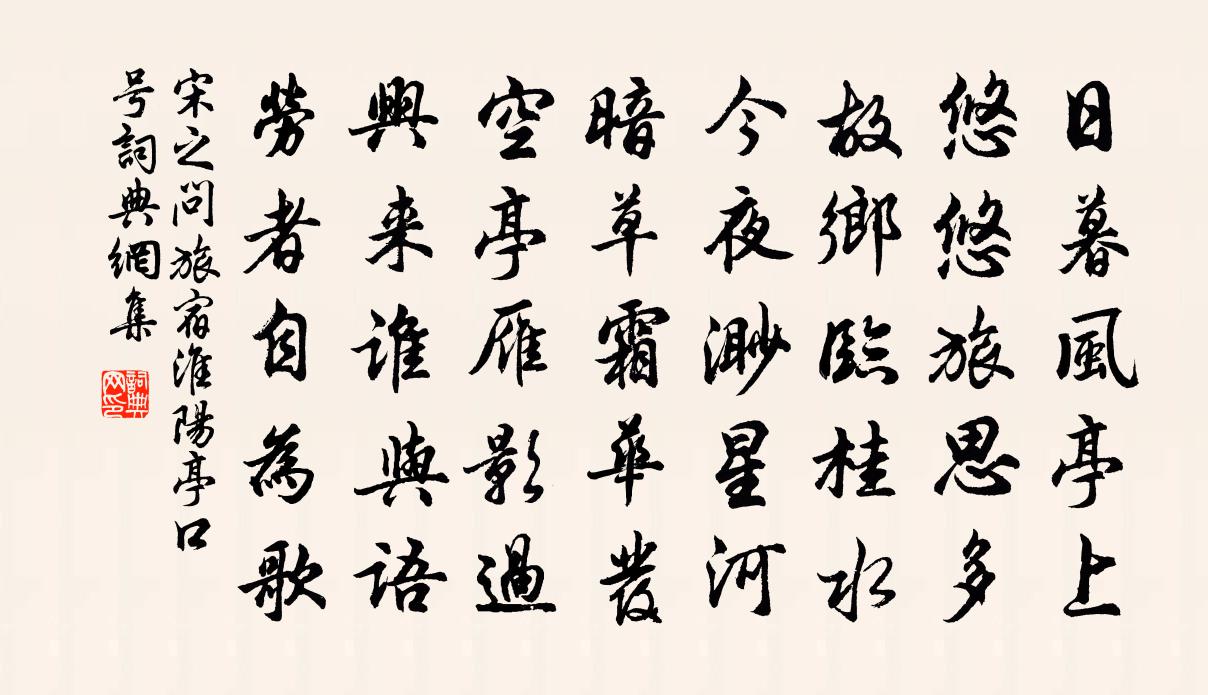 日暮風亭上
悠悠旅思多
故鄉臨桂水
今夜渺星河
暗草霜華發
空亭雁影過
興来誰與語
勞者自為歌
宋之問旅宿淮陽亭口
号詞典網集
詞典
网印